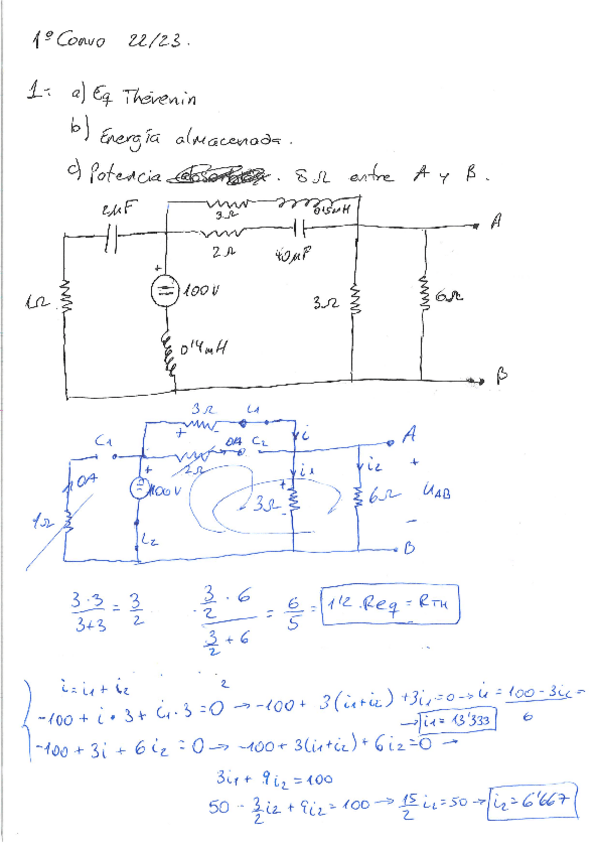 1º Convo 22/23.
1- a) Eq Thévenin
b) Energía almacenada.
c) Potencia . 8Ω entre A y B.
2μF
3Ω
0'5mH
A
2Ω
40μF
1Ω
+
100V
3Ω
6Ω
0'4mH
B
3Ω
L1
+
C1
0A
C2
i
A
2Ω
0A
+
100V
i1
+
3Ω
-
i2
6Ω
+
UAB
-
1Ω
L2
B
3·3/3+3 = 3/2 · 3/2 · 6 / 3/2 + 6 = 6/5 = 1'2 . Req = RTH
i = i1 + i2
-100 + i · 3 + i1 · 3 = 0 → -100 + 3(i1+i2) + 3i1 = 0 → i1 = 100 - 3i2 / 6 =
→ i1 = 13'333
-100 + 3i + 6i2 = 0 → -100 + 3(i1+i2) + 6i2 = 0 →
3i1 + 9i2 = 100
50 - 3/2 i2 + 9i2 = 100 → 15/2 i2 = 50 → i2 = 6'667